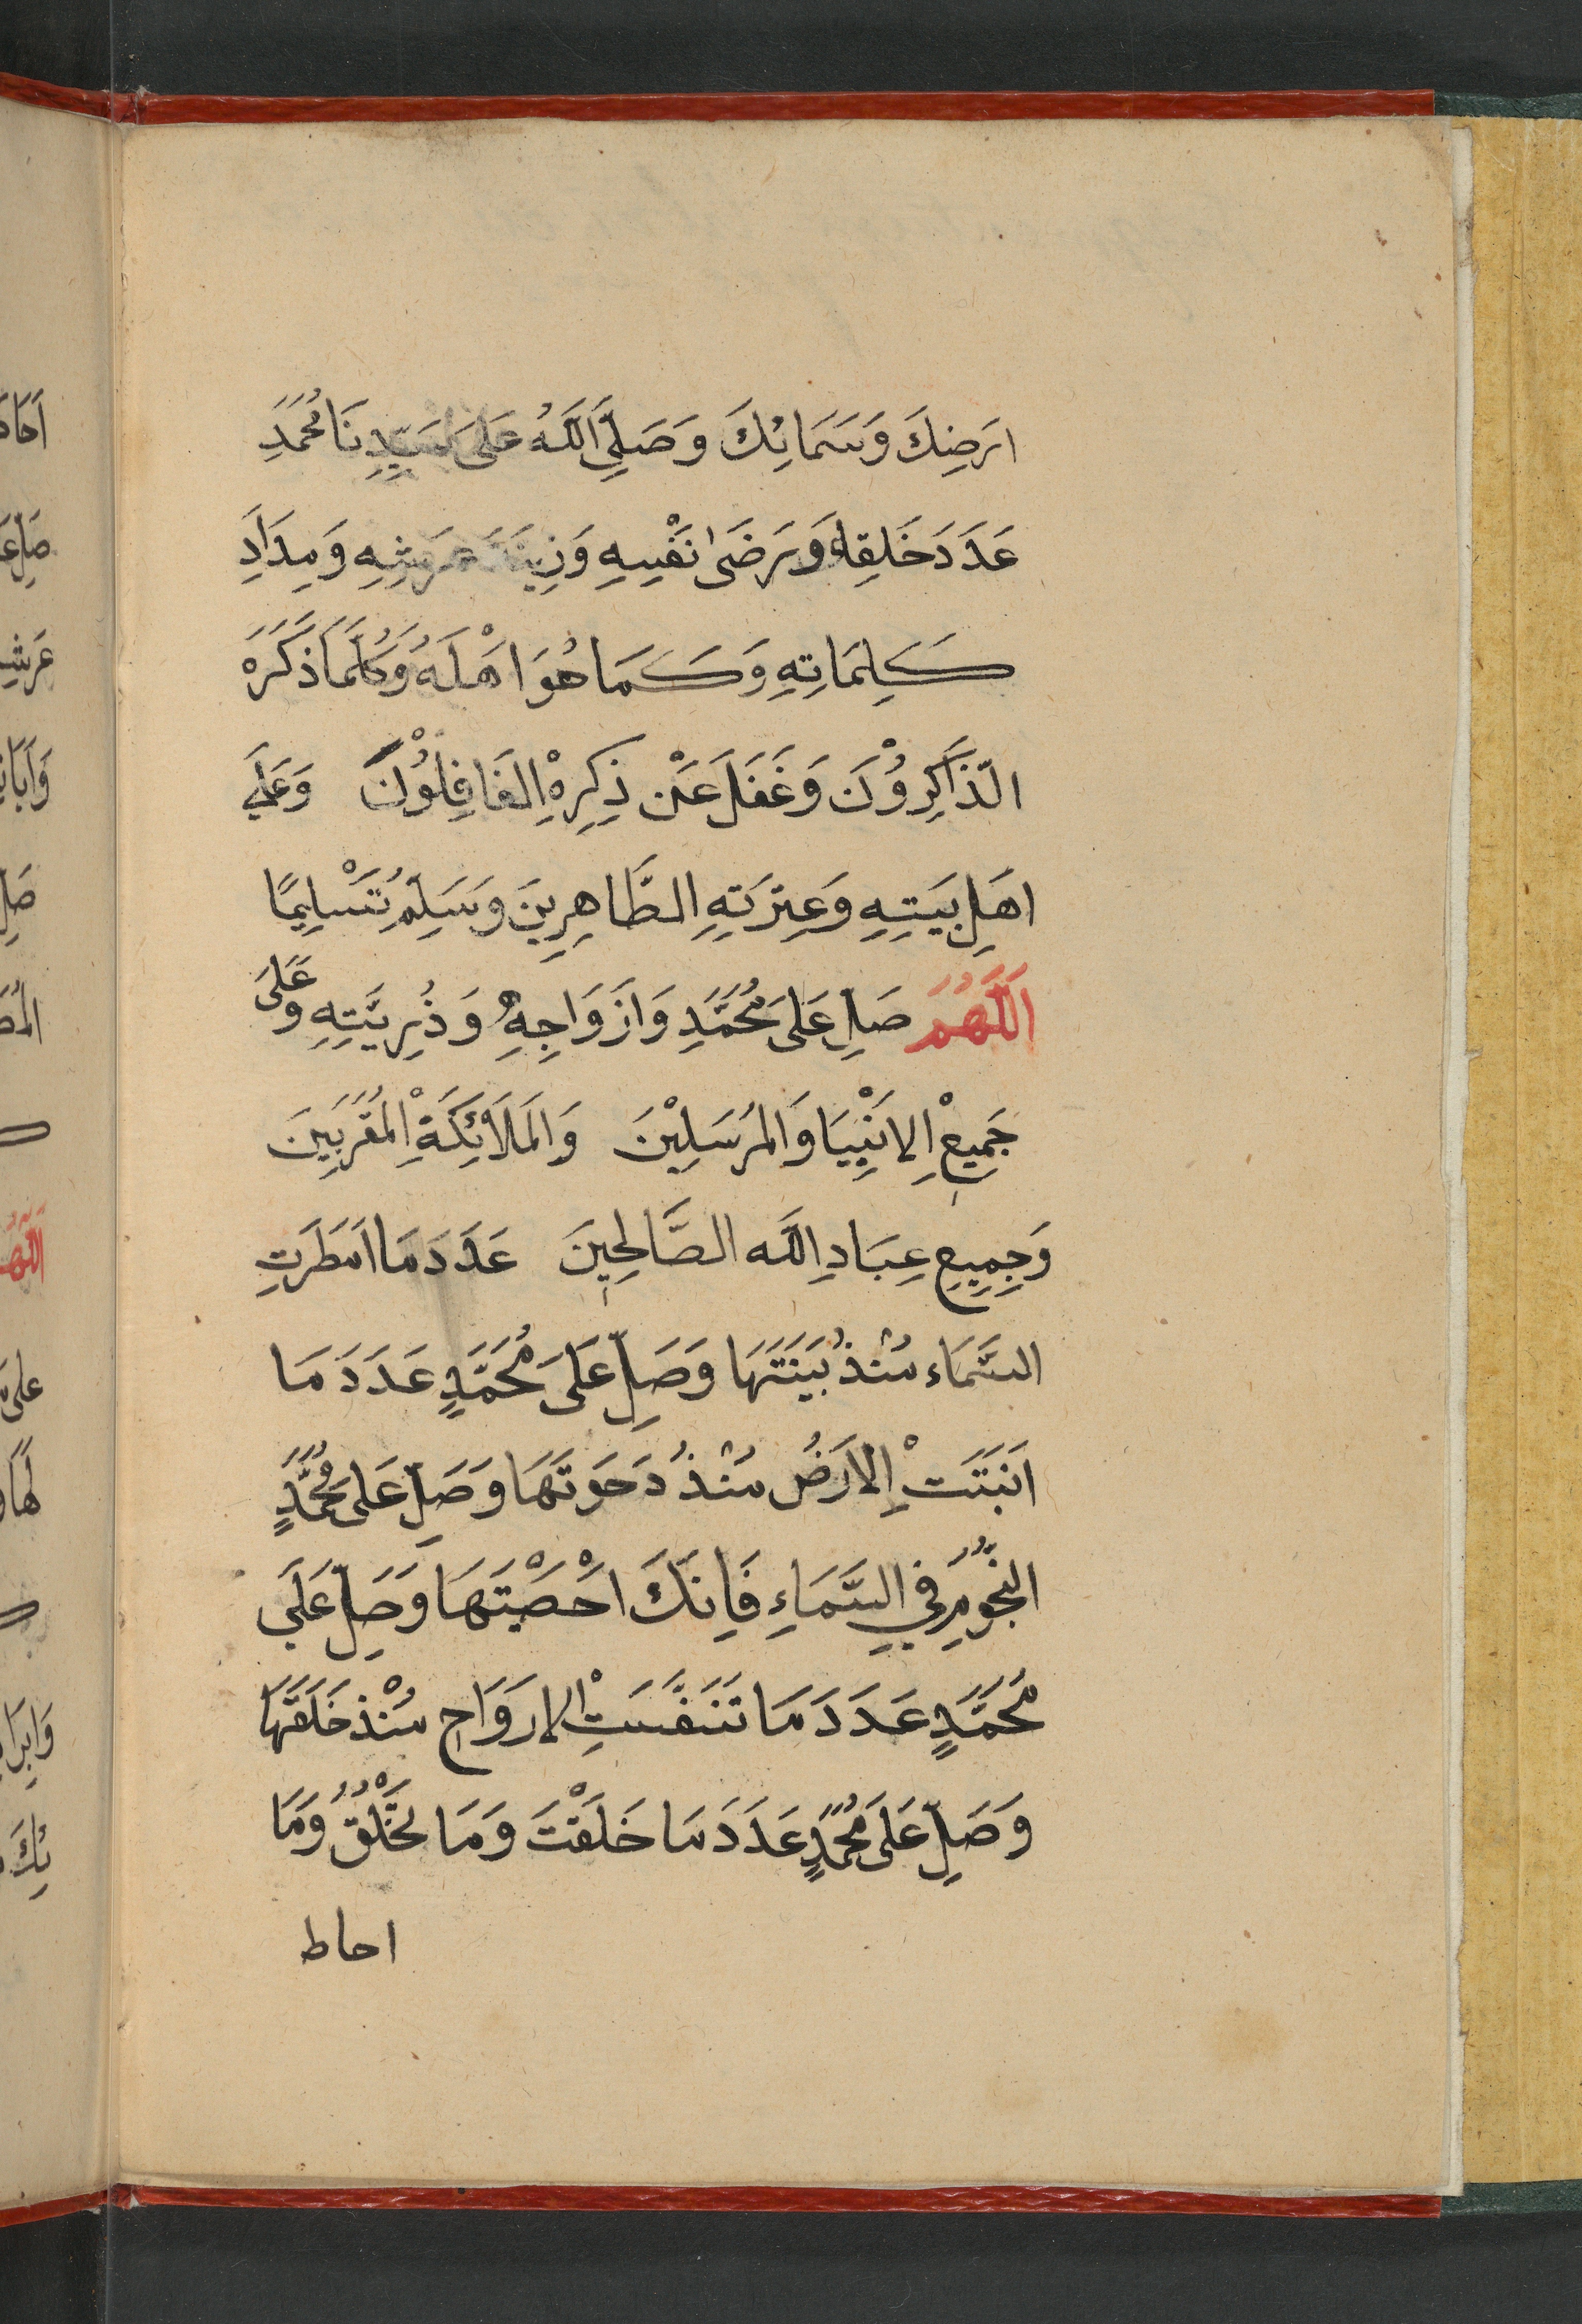 ارَضِكَ وَسَمَائِكَ وَصَلَّى اللّٰهُ عَلَى سَيِّدِنَا مُحَمَّدِ
عَدَدَ خَلَقِهِ وَرَضَى نَفْسِهِ وَزِينَةَ عَرَشِهِ وَمِدَادِ
كَلِمَاتِهِ وَكَمَا هُوَ اهْلَهُ وَكُلَّمَا ذَكَرَهُ
الذَّاكِرُوْنَ وَغَفَلَ عَنْ ذِكِرِهْ الغَافِلُوْنَ وَعَلَي
اهَلِ بَيَتِهِ وَعِتَرَتِهِ الطَّاهِرِينَ وَسَلِّمْ تَسْلِيمًا
اَللَّهُمَّ صَلِ عَلَى مُحَمَّدِ وَازَوَاجِهِ وَذُرِيَّتِهِ وَعَلَى
جَمِيعْ الانَبْيَا وَالمُرسَلِيْنَ وَالمَلَائِكَةْ المُقَرَبِينَ
وَجِمِيعِ عِبَادِ اللَّه الصَّالِحِينَ عَدَدَ مَا امَطَرَتِ
السَّمَاء مُنْذُ بَيَنَتَهَا وَصَلِّ عَلَى مُحَمَّدٍ عَدَدَ مَا
اَنبَتَتْ الاَرَضُ مُنْذُ دَحَوتَهَا وَصَلِّ عَلَى مُحَمَّدٍ
النجُّومِ فِي السَّمَاءِ فَاِنَكَ احْصَيْتَهَا وَصَلِّ عَلَي
مُحَمَّدٍ عَدَدَ مَا تَنَفَّسَتْ الارَوَاحِ مُنْذ خَلَقَهَا
وَصَلِّ عَلَى مُحَمَّدٍ عَدَدَ مَا خَلَقْتَ وَمَا تَخْلُقُ وَمَا
احاط